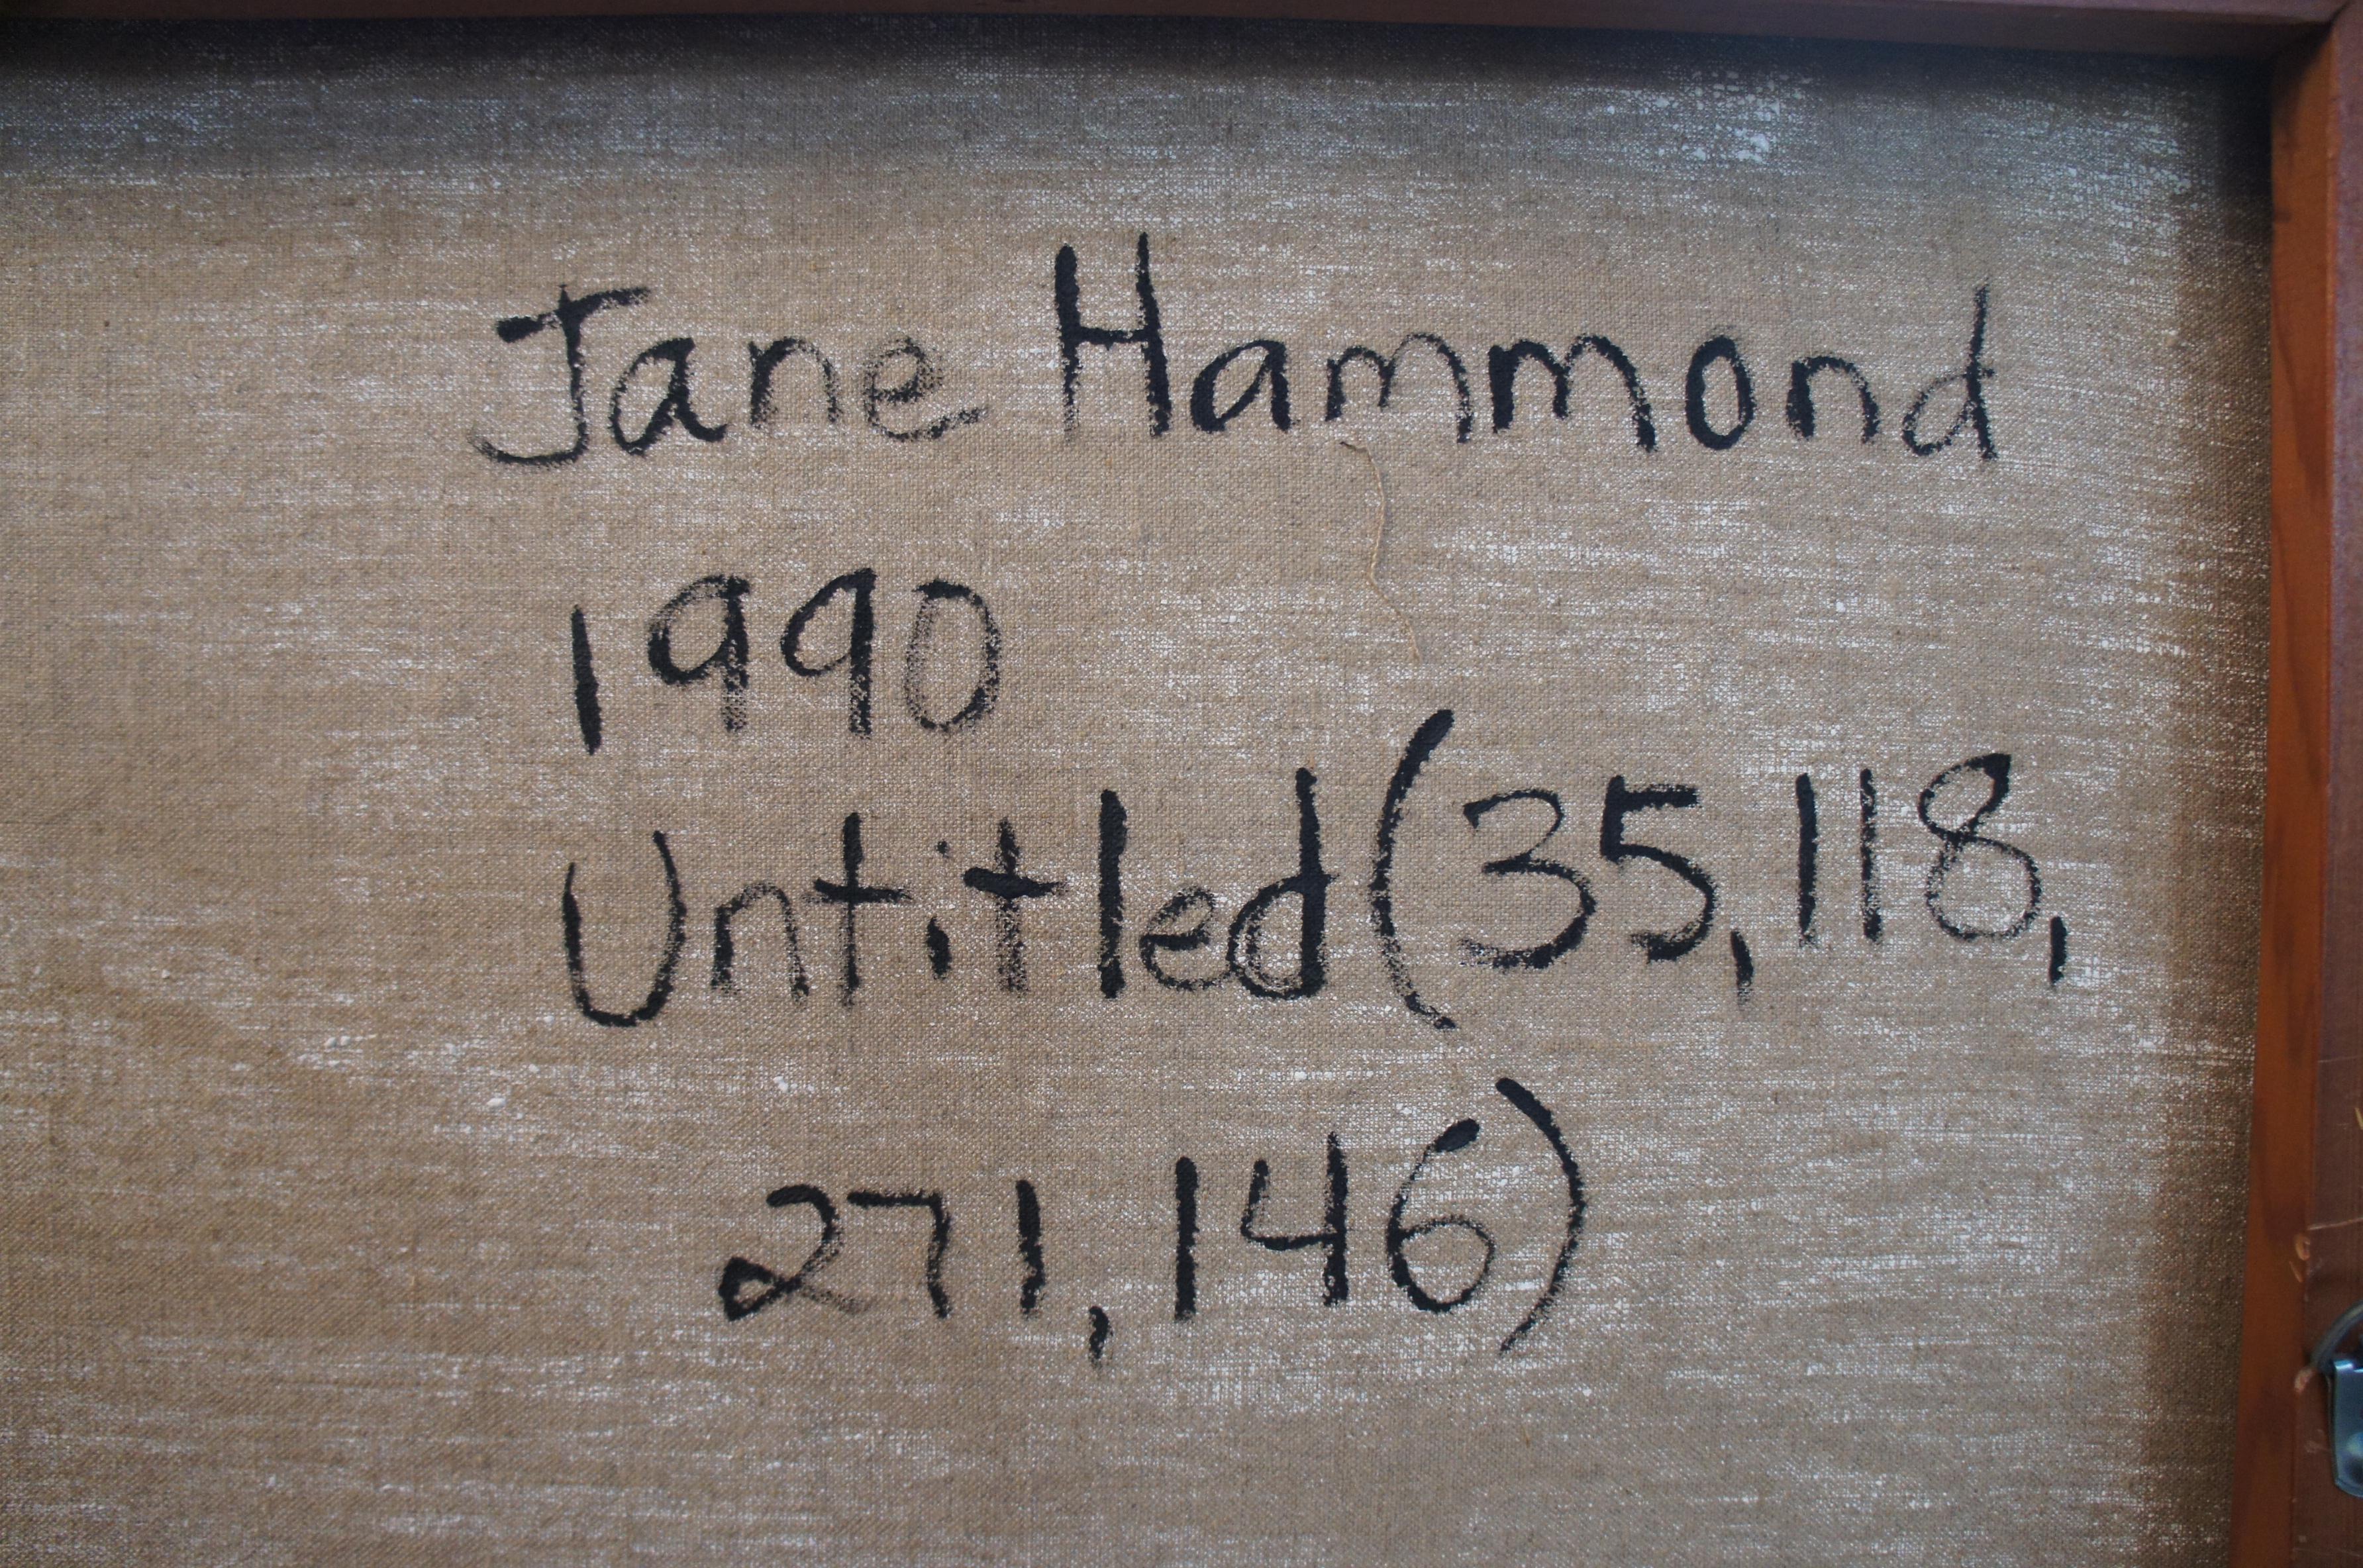 Jane Hammond
1990
Untitled (35, 118,
271, 146)